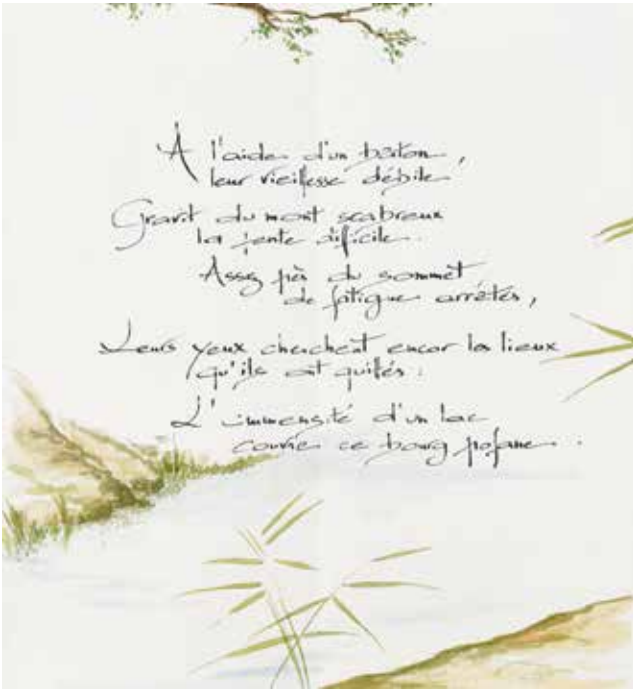 À l'aide d'un bâton,
leur vieillesse débile
Gravit du mont scabreux
la pente difficile.
Assez près du sommet
de fatigue arrêtés,
Leurs yeux cherchent encor les lieux
qu'ils ont quittés :
L'immensité d'un lac
couvre ce bourg profane.